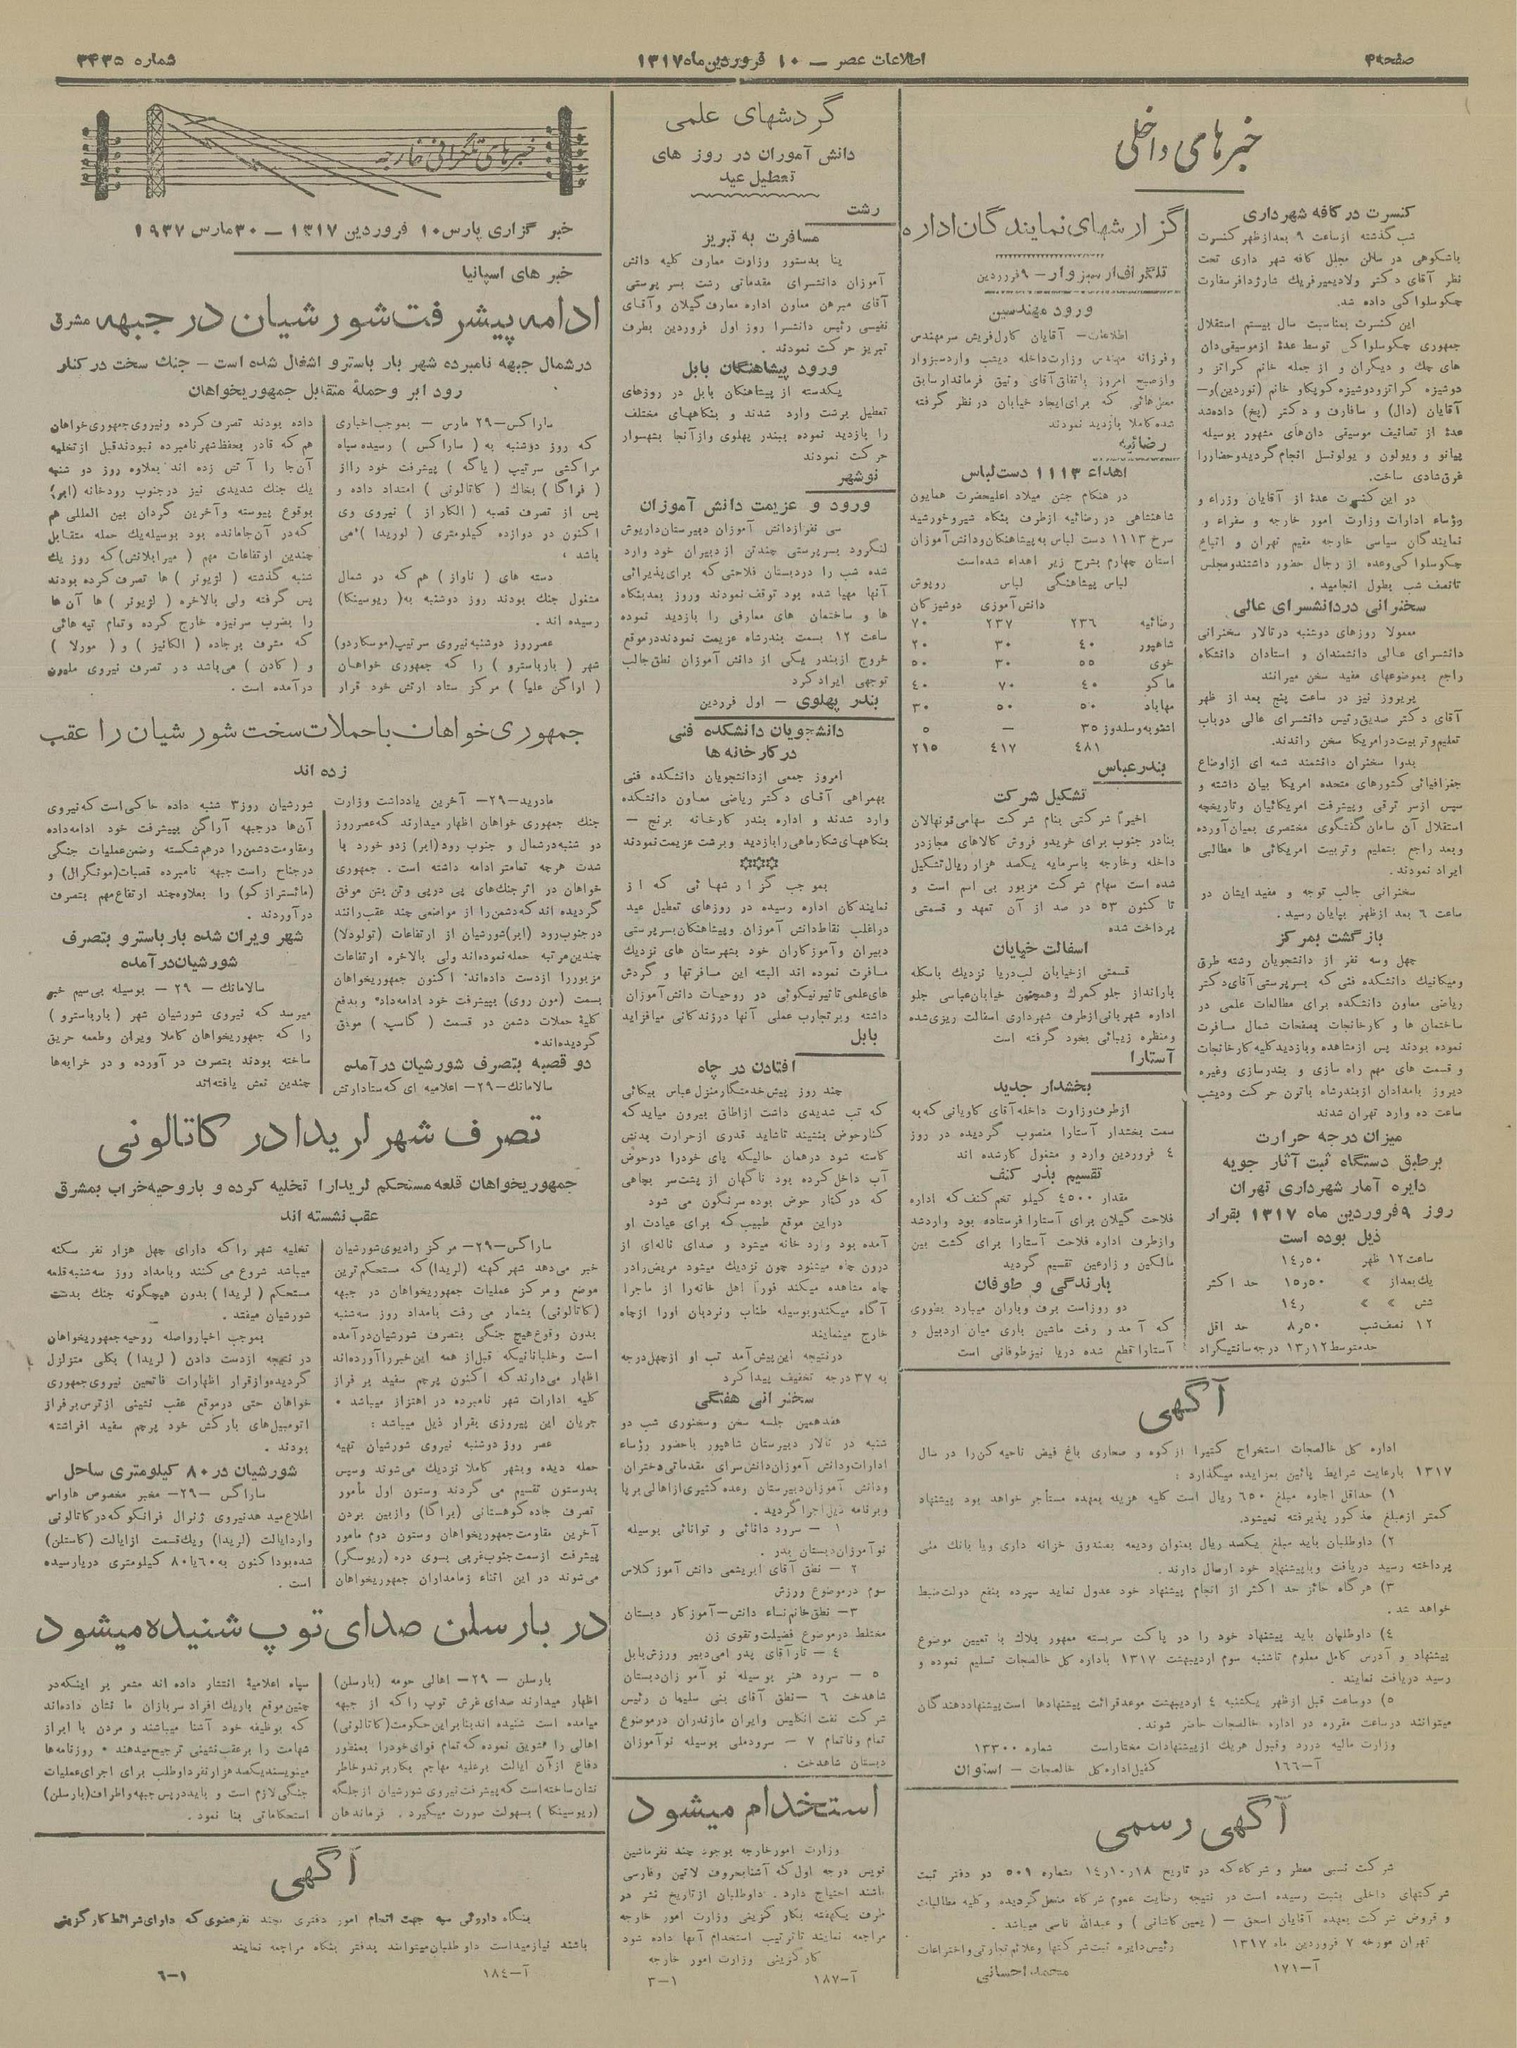 صفحه ۴
اطلاعات عصر – ۱۰ فروردین ماه ۱۳۱۷
شماره ۳۴۳۵
خبرهای داخلی
کنسرت در کافه شهرداری
شب گذشته از ساعت ۹ بعدازظهر کنسرت
باشکوهی در سالن مجلل کافه شهرداری تحت
نظر آقای دکتر ولادیمیر فریك شارژدافر سفارت
چکوسلواکی داده شد.
این کنسرت بمناسبت سال بیستم استقلال
جمهوری چکوسلواکی توسط عدهٔ از موسیقی‌دان
های چك و دیگران و از جمله خانم کراتز و
دوشیزه کراتز و دوشیزه کوپکاو خانم (نوردین) و –
آقایان (دال) و سافارف و دکتر (یخ) داده شد
عدهٔ از تصانیف موسیقی دان‌های مشهور بوسیله
پیانو و ویولون و یولونسل انجام گردید و حضار را
غرق شادی ساخت.
در این کنسرت عدهٔ از آقایان وزراء و
رؤساء ادارات وزارت امور خارجه و سفراء و
نمایندگان سیاسی خارجه مقیم تهران و اتباع
چکوسلواکی وعده از رجال حضور داشتند و مجلس
تا نصف شب بطول انجامید.
سخنرانی در دانشسرای عالی
معمولا روزهای دوشنبه در تالار سخنرانی
دانشسرای عالی دانشمندان و استادان دانشگاه
راجع بموضوعهای مفید سخن میرانند
پریروز نیز در ساعت پنج بعد از ظهر
آقای دکتر صدیق رئیس دانشسرای عالی در باب
تعلیم و تربیت در امریکا سخن راندند.
بدوا سخنران دانشمند شمه ای از اوضاع
جغرافیائی کشورهای متحده امریکا بیان داشته و
سپس از سر ترقی و پیشرفت امریکائیان و تاریخچه
استقلال آن سامان گفتگوی مختصری بمیان آورده
و بعد راجع بتعلیم و تربیت امریکائی ها مطالبی
ایراد نمودند.
سخنرانی جالب توجه و مفید ایشان در
ساعت ٦ بعد از ظهر بپایان رسید.
بازگشت بمرکز
چهل و سه نفر از دانشجویان رشته طرق
و میکانیك دانشکده فنی که بسرپرستی آقای دکتر
ریاضی معاون دانشکده برای مطالعات علمی در
ساختمان ها و کارخانجات صفحات شمال مسافرت
نموده بودند پس از مشاهده و بازدید کلیه کارخانجات
و قسمت های مهم راه سازی و بندرسازی وغیره
دیروز بامدادان از بندرشاه باترن حرکت و دیشب
ساعت ده وارد تهران شدند
میزان درجه حرارت
برطبق دستگاه ثبت آثار جویه
دایره آمار شهرداری تهران
روز ۹ فروردین ماه ۱۳۱۷ بقرار
ذیل بوده است
ساعت ۱۲ ظهر ۱٤٫٥۰
یك بعداز » ۱٥٫٥۰ حد اکثر
شش » » ۱٤٫
۱۲ نصف شب ۸٫٥۰ حد اقل
حد متوسط ۱۳٫۱۲ درجه سانتیگراد
گزارشهای نمایندگان اداره
تلگراف از سبزوار – ۹ فروردین
ورود مهندسین
اطلاعات – آقایان کارل فریش سر مهندس
و فرزانه مهندس وزارت داخله دیشب وارد سبزوار
و از صبح امروز باتفاق آقای وثیق فرماندار سابق
محل هائی که برای ایجاد خیابان در نظر گرفته
شده کاملا بازدید نمودند
رضائیه
اهداء ۱۱۱۳ دست لباس
در هنگام جشن میلاد اعلیحضرت همایون
شاهنشاهی در رضائیه از طرف بنگاه شیر و خورشید
سرخ ۱۱۱۳ دست لباس به پیشاهنگان و دانش آموزان
استان چهارم بشرح زیر اهداء شده است
لباس پیشاهنگی لباس روپوش
دانش‌آموزی دوشیزگان
رضائیه ۲۳٦ ۲۳۷ ۷۰
شاهپور ٤۰ ۳۰ ۲۰
خوی ٥٥ ۳۰ ٥۰
ماکو ٤۰ ۷۰ ٤۰
مهاباد ٥۰ ٥۰ ۳۰
اشنویه و سلدوز ۳٥ – ٥
٤۸۱ ٤۱۷ ۲۱٥
بندرعباس
تشکیل شرکت
اخیراً شرکتی بنام شرکت سهامی قونهالان
بنادر جنوب برای خرید و فروش کالاهای مجاز در
داخله وخارجه باسرمایه یکصد هزار ریال تشکیل
شده است سهام شرکت مزبور بی اسم است و
تا کنون ٥۳ در صد از آن تعهد و قسمتی
پرداخت شده
اسفالت خیابان
قسمتی از خیابان لب دریا نزدیك باسکله
بارانداز جلو گمرك و همچنین خیابان عباسی جلو
اداره شهربانی از طرف شهرداری اسفالت ریزی شده
و منظره زیبائی بخود گرفته است
آستارا
بخشدار جدید
از طرف وزارت داخله آقای کاریانی که به
سمت بخشدار آستارا منصوب گردیده در روز
٤ فروردین وارد و مشغول کار شده اند
تقسیم بذر کنف
مقدار ٤٥۰۰ کیلو تخم کنف که اداره
فلاحت گیلان برای آستارا فرستاده بود وارد شد
و از طرف اداره فلاحت آستارا برای کشت بین
مالکین و زارعین تقسیم گردید
بارندگی و طوفان
دو روز است برف و باران میبارد بطوری
که آمد و رفت ماشین باری میان اردبیل و
آستارا قطع شده دریا نیز طوفانی است
آگهی
اداره کل خالصجات استخراج کتیرا از کوه و صحاری باغ فیض ناحیه کن را در سال
۱۳۱۷ بارعایت شرایط پائین بمزایده میگذارد:
۱) حداقل اجاره مبلغ ٦٥۰ ریال است کلیه هزینه بعهده مستأجر خواهد بود پیشنهاد
کمتر از مبلغ مذکور پذیرفته نمیشود.
۲) داوطلبان باید مبلغ یکصد ریال بعنوان ودیعه بصندوق خزانه داری ویا بانك ملی
پرداخته رسید دریافت و با پیشنهاد خود ارسال دارند.
۳) هر گاه حائز حد اکثر از انجام پیشنهاد خود عدول نماید سپرده بنفع دولت ضبط
خواهد شد.
٤) داوطلبان باید پیشنهاد خود را در پاکت سربسته ممهور بلاك با تعیین موضوع
پیشنهاد و آدرس کامل معلوم تا شنبه سوم اردیبهشت ۱۳۱۷ باداره کل خالصجات تسلیم نموده و
رسید دریافت نمایند.
٥) دو ساعت قبل از ظهر یکشنبه ٤ اردیبهشت موعد قرائت پیشنهادها است پیشنهاد دهندگان
میتوانند در ساعت مقرره در اداره خالصجات حاضر شوند.
وزارت مالیه در رد و قبول هر یك از پیشنهادات مختار است شماره ۱۳۳۰۰
آ–۱٦٦ کفیل اداره کل خالصجات – استوان
آگهی رسمی
شرکت نسبی معطر و شرکاء که در تاریخ ۱٤٫۱۰٫۱۸ بشماره ٥۰۱ در دفتر ثبت
شرکتهای داخلی بثبت رسیده است در نتیجه رضایت عموم شرکاء منحل گردیده و کلیه مطالبات
و قروض شرکت بعهده آقایان اسحق – (یمین کاشانی) و عبدالله ناسی میباشد.
تهران مورخه ۷ فروردین ماه ۱۳۱۷ رئیس دایره ثبت شرکتها و علائم تجارتی و اختراعات
آ–۱۷۱ محمد احسانی
گردشهای علمی
دانش آموران در روز های
تعطیل عید
رشت
مسافرت به تبریز
بنا بدستور وزارت معارف کلیه دانش
آموزان دانشسرای مقدماتی رشت بسرپرستی
آقای مبرهن معاون اداره معارف گیلان و آقای
نفیسی رئیس دانشسرا روز اول فروردین بطرف
تبریز حرکت نمودند.
ورود پیشاهنگان بابل
یکدسته از پیشاهنگان بابل در روزهای
تعطیل برشت وارد شدند و بنگاههای مختلف
را بازدید نموده ببندر پهلوی و از آنجا بشهسوار
حرکت نمودند
نوشهر
ورود و عزیمت دانش آموزان
سی نفر از دانش آموزان دبیرستان داریوش
لنگرود بسرپرستی چند تن از دبیران خود وارد
شده شب را در دبستان فلاحتی که برای پذیرائی
آنها مهیا شده بود توقف نمودند و روز بعد بنگاه
ها و ساختمان های معارفی را بازدید نموده
ساعت ۱۲ بسمت بندرشاه عزیمت نمودند در موقع
خروج از بندر یکی از دانش آموزان نطق جالب
توجهی ایراد کرد
بندر پهلوی – اول فرردین
دانشجویان دانشکده فنی
در کارخانه ها
امروز جمعی از دانشجویان دانشکده فنی
بهمراهی آقای دکتر ریاضی معاون دانشکده
وارد شدند و اداره بندر کارخانه برنج –
بنگاههای شکار ماهی را بازدید و برشت عزیمت نمودند
بموجب گزارشهائی که از
نمایندگان اداره رسیده در روزهای تعطیل عید
در اغلب نقاط دانش آموزان و پیشاهنگان بسرپرستی
دبیران و آموزکاران خود بشهرستان های نزدیك
مسافرت نموده اند البته این مسافرتها و گردش
های علمی تاثیر نیکوئی در روحیات دانش آموزان
داشته و بر تجارب عملی آنها در زندگانی میافزاید
بابل
افتادن در چاه
چند روز پیش خدمتگار منزل عباس بیکائی
که تب شدیدی داشت از اطاق بیرون میاید که
کنار حوض بنشیند تا شاید قدری از حرارت بدنش
کاسته شود در همان حالیکه پای خود را در حوض
آب داخل کرده بود ناگهان از پشت سر بچاهی
که در کنار حوض بوده سرنگون می شود
در این موقع طبیب که برای عیادت او
آمده بود وارد خانه میشود و صدای ناله‌ای از
درون چاه میشنود چون نزدیك میشود مریض را در
چاه مشاهده میکند فوراً اهل خانه را از ماجرا
آگاه میکند و بوسیله طناب و نردبان اورا از چاه
خارج مینمایند
در نتیجه این پیش آمد تب او از چهل درجه
به ۳۷ درجه تخفیف پیدا کرد
سخنرانی هفتگی
هفدهمین جلسه سخن و سخنوری شب دو
شنبه در تالار دبیرستان شاهپور باحضور رؤساء
ادارات و دانش آموزان دانش سرای مقدماتی دختران
و دانش آموزان دبیرستان وعده کثیری از اهالی برپا
و برنامه ذیل اجرا گردید.
۱ – سرود دانائی و توانائی بوسیله
نوآموزان دبستان بدر.
۲ – نطق آقای ابریشمی دانش آموز کلاس
سوم در موضوع ورزش
۳ – نطق خانم نساء دانش – آموزکار دبستان
مختلط در موضوع فضیلت و تقوی زن
٤ – تار آقای پدرامی دبیر ورزش بابل
٥ – سرود هنر بوسیله نو آموزان دبستان
شاهدخت ٦ – نطق آقای بنی سلیمان رئیس
شرکت نفت انگلیس و ایران مازندران در موضوع
تمام و ناتمام ۷ – سرود ملی بوسیله نوآموزان
دبستان شاهدخت.
استخدام میشود
وزارت امور خارجه بوجود چند نفر ماشین
نویس درجه اول که آشنا بحروف لاتین و فارسی
باشند احتیاج دارد. داوطلبان از تاریخ نشر در
ظرف یکهفته بکار گزینی وزارت امور خارجه
مراجعه نمایند تا ترتیب استخدام آنها داده شود
کارگزینی وزارت امور خارجه
آ–۱۸۷ ۳–۱
خبرهای تلگرافی خارجه
خبر گزاری پارس ۱۰ فروردین ۱۳۱۷ – ۳۰ مارس ۱۹۳۷
خبر های اسپانیا
ادامه پیشرفت شورشیان در جبهه مشرق
در شمال جبهه نامبرده شهر بار باسترو اشغال شده است – جنك سخت در کنار
رود ابر و حملهٔ متقابل جمهوریخواهان
ساراکس – ۲۹ مارس – بموجب اخباری
که روز دوشنبه به (ساراکس) رسیده سپاه
مراکشی سرتیپ (یاگه) پیشرفت خود را از
(فراگا) بخاك (کاتالونی) امتداد داده و
پس از تصرف قصبه (الکاراز) نیروی وی
اکنون در دوازده کیلومتری (لوریدا) می
باشد،
دسته های (ناواز) هم که در شمال
مشغول جنك بودند روز دوشنبه به (ریوسینکا)
رسیده اند.
عصر روز دوشنبه نیروی سرتیپ (موسکاردو)
شهر (بارباسترو) را که جمهوری خواهان
(اراگن علیا) مرکز ستاد ارتش خود قرار
داده بودند تصرف کرده و نیروی جمهوری خواهان
هم که قادر بحفظ شهر نامبرده نبودند قبل از تخلیه
آن‌جا را آتش زده اند بعلاوه روز دو شنبه
یك جنك شدیدی نیز در جنوب رودخانه (ابر)
بوقوع پیوسته و آخرین گردان بین المللی هم
که در آن جامانده بود بوسیله یك حمله متقابل
چندین ارتفاعات مهم (میرابلانش) که روز یك
شنبه گذشته (لژیونر) ها تصرف کرده بودند
پس گرفته ولی بالاخره (لژیونر) ها آن ها
را بضرب سرنیزه خارج کرده و تمام تپه هائی
که مشرف بر جاده (الکانیز) و (مورلا)
و (کادن) می‌باشد در تصرف نیروی ملیون
در آمده است.
جمهوری خواهان با حملات سخت شورشیان را عقب
زده اند
مادرید – ۲۹ – آخرین یادداشت وزارت
جنك جمهوری خواهان اظهار میدارند که عصر روز
دو شنبه در شمال و جنوب رود (ابر) زدو خورد با
شدت هرچه تمامتر ادامه داشته است. جمهوری
خواهان در اثر جنك‌های پی در پی و تن بتن موفق
گردیده اند که دشمن را از مواضعی چند عقب رانند
در جنوب رود (ابر) شورشیان از ارتفاعات (تولودلا)
چندین مرتبه حمله نموده‌اند ولی بالاخره ارتفاعات
مزبور را از دست داده‌اند اکنون جمهوریخواهان
بسمت (مون روی) پیشرفت خود ادامه داد و بدفع
کلیهٔ حملات دشمن در قسمت (گاسپ) موفق
گردیده‌اند.
دو قصبه بتصرف شورشیان در آمده
سالامانك – ۲۹ – اعلامیه ای که ستاد ارتش
شورشیان روز ۳ شنبه داده حاکی است که نیروی
آن‌ها در جبهه آراگن بپیشرفت خود ادامه داده
و مقاومت دشمن را در هم شکسته و ضمن عملیات جنگی
در جناح راست جبهه نامبرده قصبات (مونگرال) و
(ماتسترازکو) را بعلاوه چند ارتفاع مهم بتصرف
در آوردند.
شهر ویران شده بارباسترو بتصرف
شورشیان در آمده
سالامانك – ۲۹ – بوسیله بی‌سیم خبر
میرسد که نیروی شورشیان شهر (بارباسترو)
را که جمهوریخواهان کاملا ویران و طعمه حریق
ساخته بودند بتصرف در آورده و در خرابه‌ها
چندین نعش یافته‌اند
تصرف شهر لریدا در کاتالونی
جمهوریخواهان قلعه مستحکم لریدا را تخلیه کرده و با روحیه خراب بمشرق
عقب نشسته اند
ساراگس – ۲۹ – مرکز رادیوی شورشیان
خبر می‌دهد شهر کهنه (لریدا) که مستحکم ترین
موضع و مرکز عملیات جمهوریخواهان در جبهه
(کاتالونی) بشمار می رفت بامداد روز سه‌شنبه
بدون وقوع هیچ جنگی بتصرف شورشیان در آمده
است و خلبانانیکه قبل از همه این خبر را آورده‌اند
اظهار می‌دارند که اکنون پرچم سفید بر فراز
کلیه ادارات شهر نامبرده در اهتزاز میباشد.
جریان این پیروزی بقرار ذیل میباشد:
عصر روز دوشنبه نیروی شورشیان تهیه
حمله دیده و بشهر کاملا نزدیك می‌شوند و سپس
بدو ستون تقسیم می گردند و ستون اول مأمور
تصرف جاده کوهستانی (براگا) و از بین بردن
آخرین مقاومت جمهوریخواهان و ستون دوم مأمور
پیشرفت از سمت جنوب غربی بسوی دره (ریوسگر)
می‌شوند در این اثناء زمامداران جمهوریخواهان
تخلیه شهر را که دارای چهل هزار نفر سکنه
میباشد شروع می کنند و بامداد روز سه شنبه قلعه
مستحکم (لریدا) بدون هیچگونه جنك بدست
شورشیان میفتد.
بموجب اخبار واصله روحیه جمهوریخواهان
در نتیجه از دست دادن (لریدا) بکلی متزلزل
گردیده و از قرار اظهارات فاتحین نیروی جمهوری
خواهان حتی در موقع عقب نشینی از ترس بر فراز
اتومبیل‌های بارکش خود پرچم سفید افراشته
بودند.
شورشیان در ۸۰ کیلومتری ساحل
ساراگس – ۲۹ – مخبر مخصوص هاواس
اطلاع میدهد نیروی ژنرال فرانکو که در کاتالونی
وارد ایالت (لریدا) و یك قسمت از ایالت (کاستلن)
شده بود اکنون به ٦۰ یا ۸۰ کیلومتری دریا رسیده
است.
در بارسلن صدای توپ شنیده میشود
بارسلن – ۲۹ – اهالی حومه (بارسلن)
اظهار میدارند صدای غرش توپ را که از جبهه
میامده است شنیده اند بنا بر این حکومت (کاتالونی)
اهالی را تشویق نموده که تمام قوای خود را بمنظور
دفاع از آن ایالت بر علیه مهاجم بکار برند و خاطر
نشان ساخته است که پیشرفت نیروی شورشیان از جلگه
(ریوسینکا) بسهولت صورت میگیرد. فرماندهان
سپاه اعلامیهٔ انتشار داده اند مشعر بر اینکه در
چنین موقع باریك افراد سربازان ما نشان داده‌اند
که بوظیفه خود آشنا میباشند و مردن با ابراز
شهامت را بر عقب نشینی ترجیح میدهند. روزنامه ها
مینویسند یکصد هزار نفر داوطلب برای اجرای عملیات
جنگی لازم است و باید در پس جبهه و اطراف (بارسلن)
استحکاماتی بنا نمود.
آگهی
بنگاه داروئی سپه جهت انجام امور دفتری بچند نفر عضوی که دارای شرائط کارگزینی
باشند نیازمند است داوطلبان میتوانند بدفتر بنگاه مراجعه نمایند
آ–۱۸٤ ٦–۱